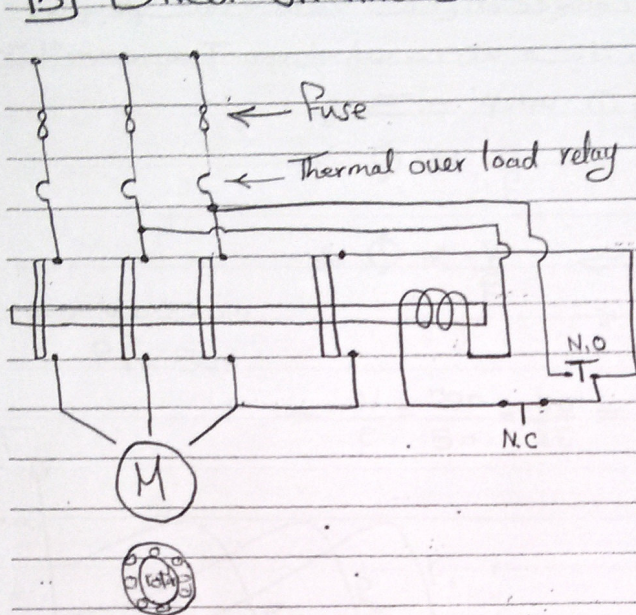 Fuse
Thermal over load relay
N.O
N.C
M